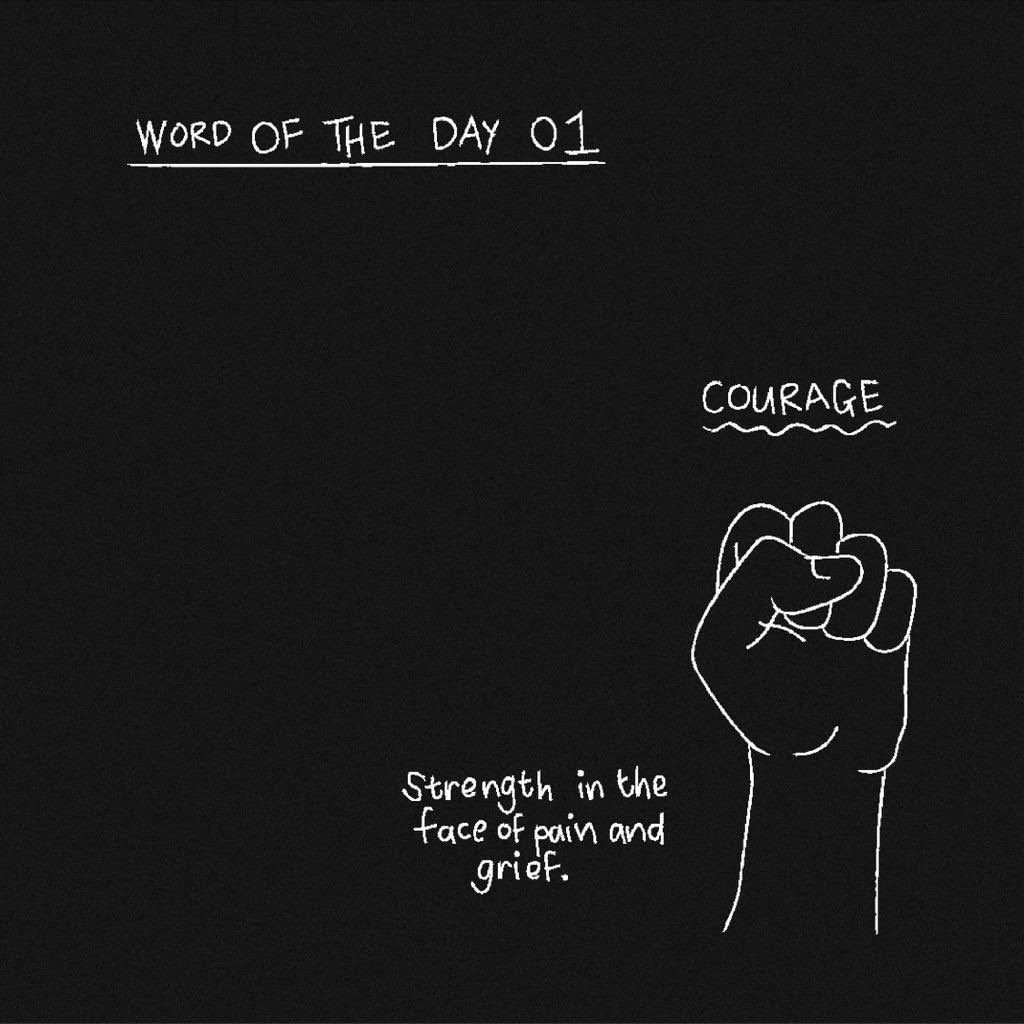 WORD OF THE DAY 01
COURAGE
Strength in the
face of pain and
grief.